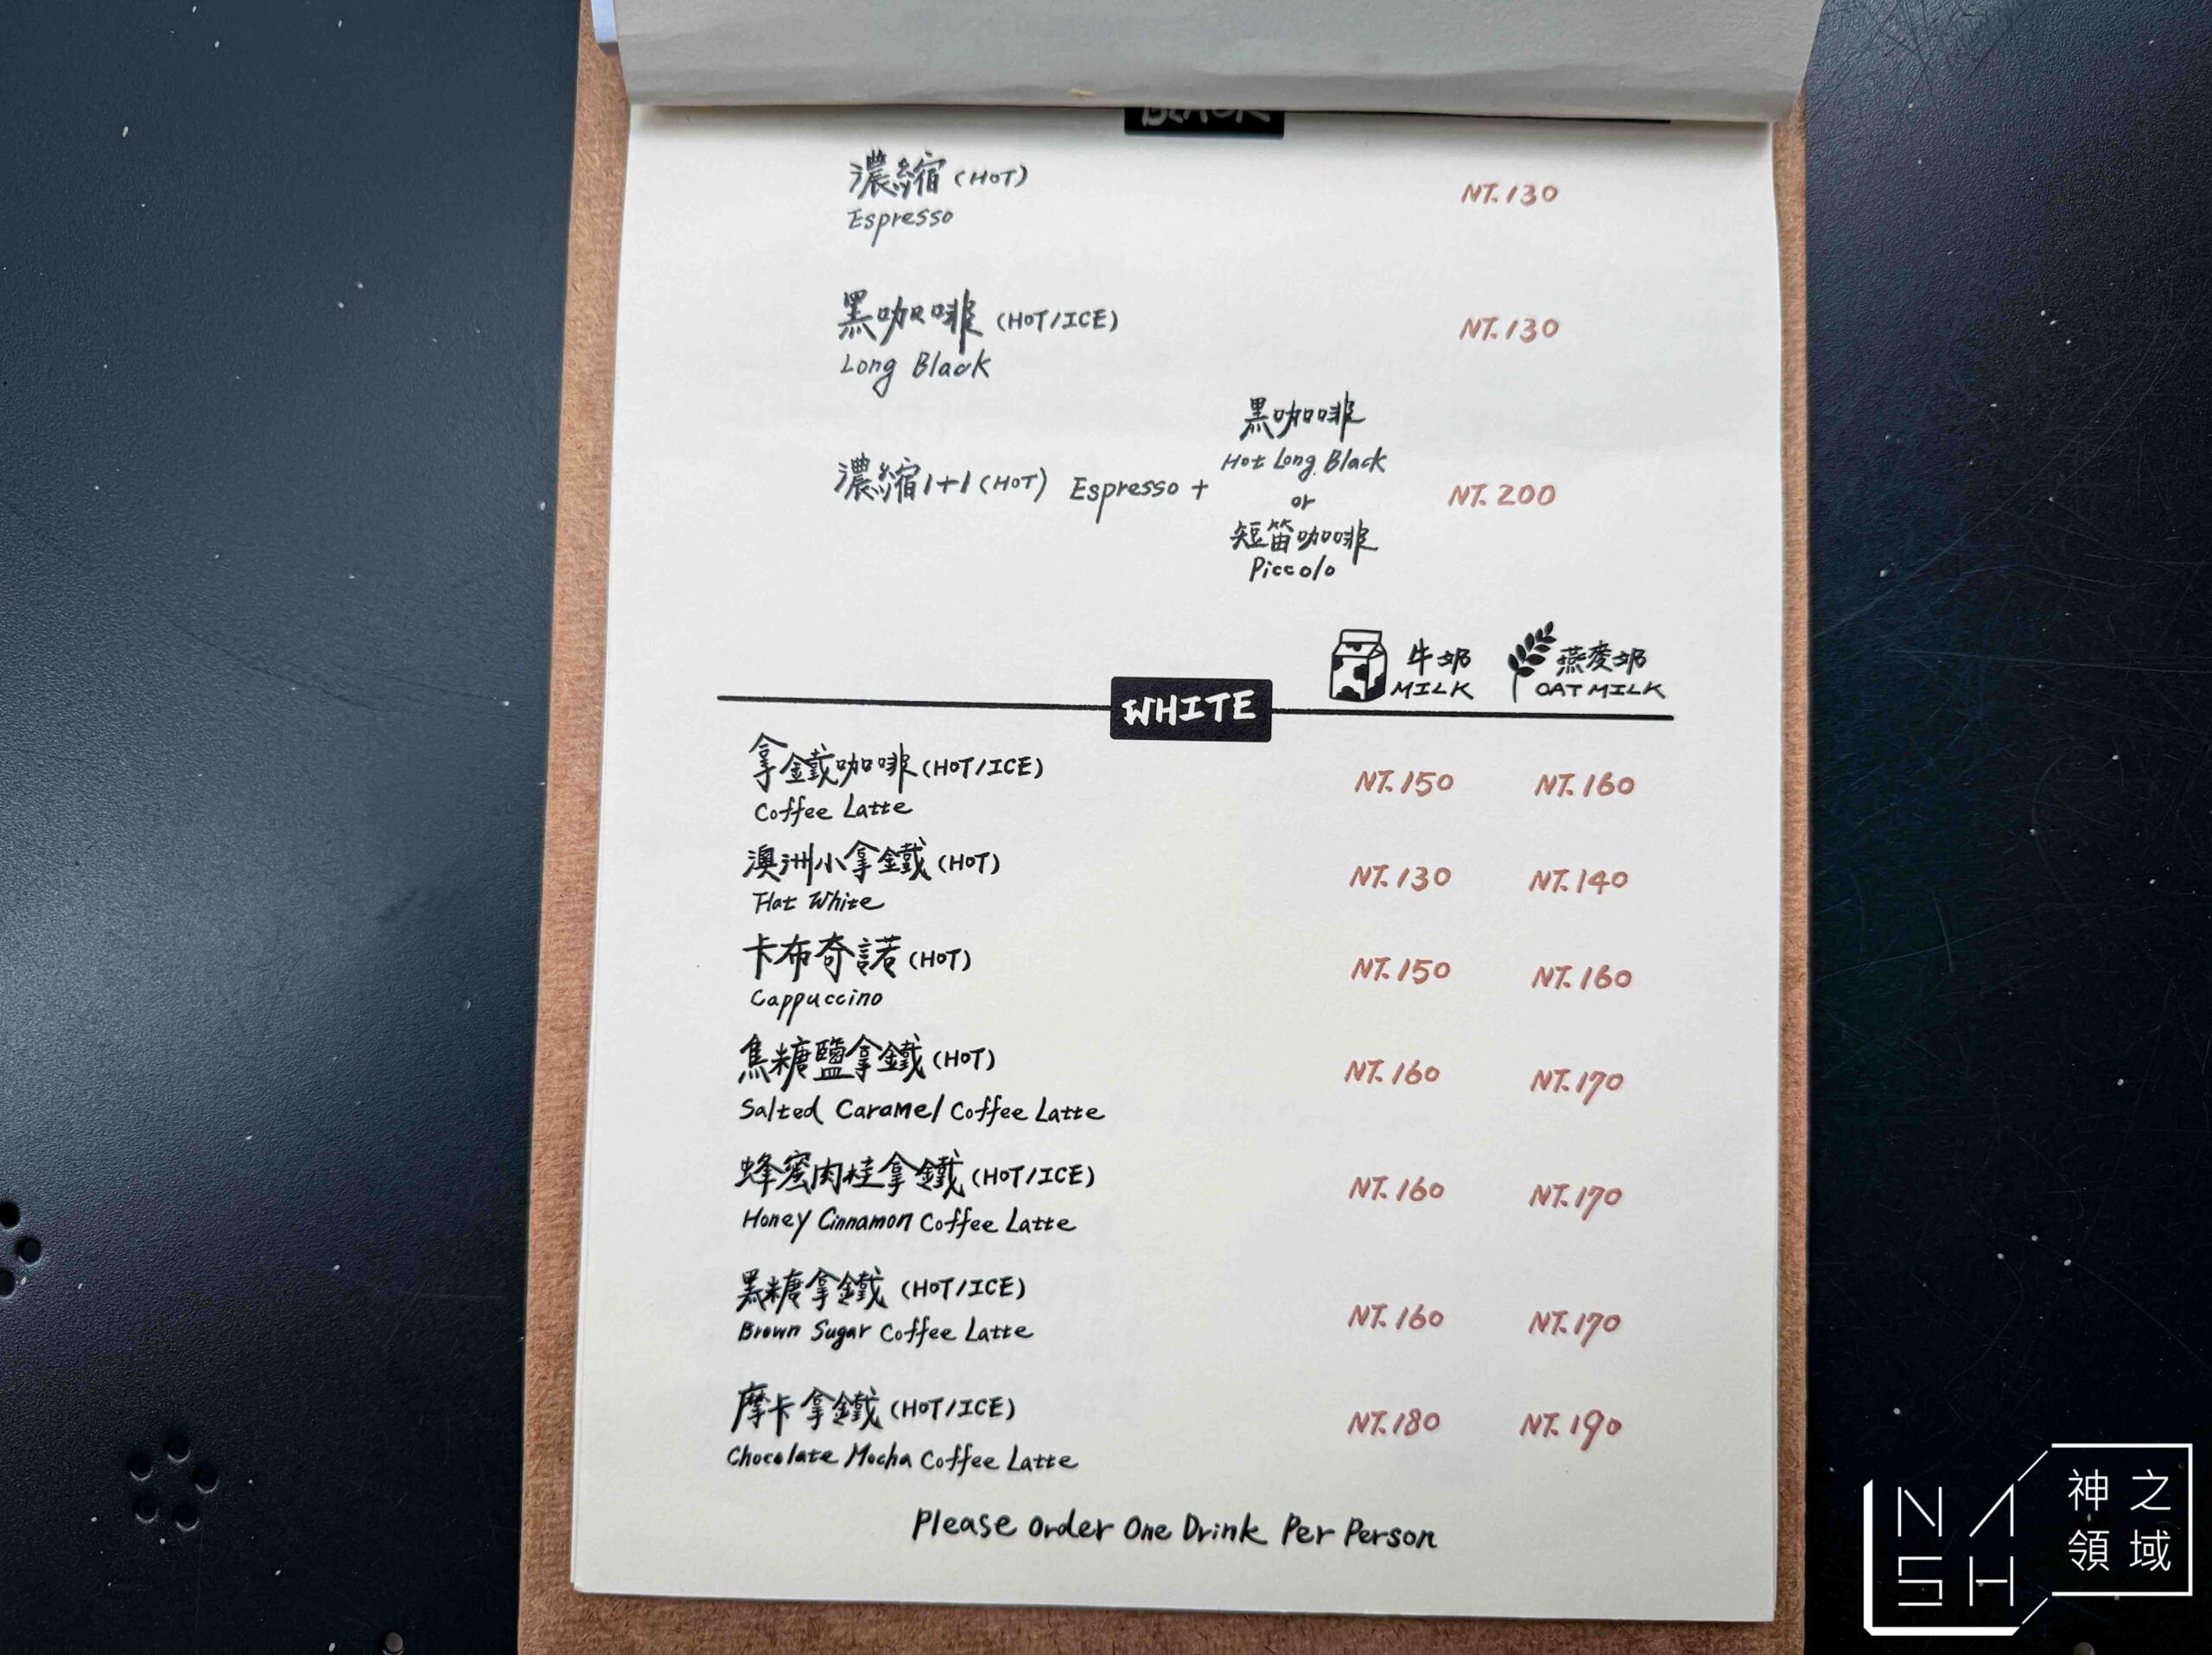 BLACK
濃縮 (HOT)
Espresso
NT. 130
黑咖啡 (HOT/ICE)
Long Black
NT. 130
濃縮1+1 (HOT) Espresso +
黑咖啡
Hot Long Black
or
短笛咖啡
Piccolo
NT. 200
牛奶
MILK
燕麥奶
OAT MILK
WHITE
拿鐵咖啡 (HOT/ICE)
Coffee Latte
NT. 150 NT. 160
澳洲小拿鐵 (HOT)
Flat White
NT. 130 NT. 140
卡布奇諾 (HOT)
Cappuccino
NT. 150 NT. 160
焦糖鹽拿鐵 (HOT)
Salted Caramel Coffee Latte
NT. 160 NT. 170
蜂蜜肉桂拿鐵 (HOT/ICE)
Honey Cinnamon Coffee Latte
NT. 160 NT. 170
黑糖拿鐵 (HOT/ICE)
Brown Sugar Coffee Latte
NT. 160 NT. 170
摩卡拿鐵 (HOT/ICE)
Chocolate Mocha Coffee Latte
NT. 180 NT. 190
Please Order One Drink Per Person
NASH
神之
領域